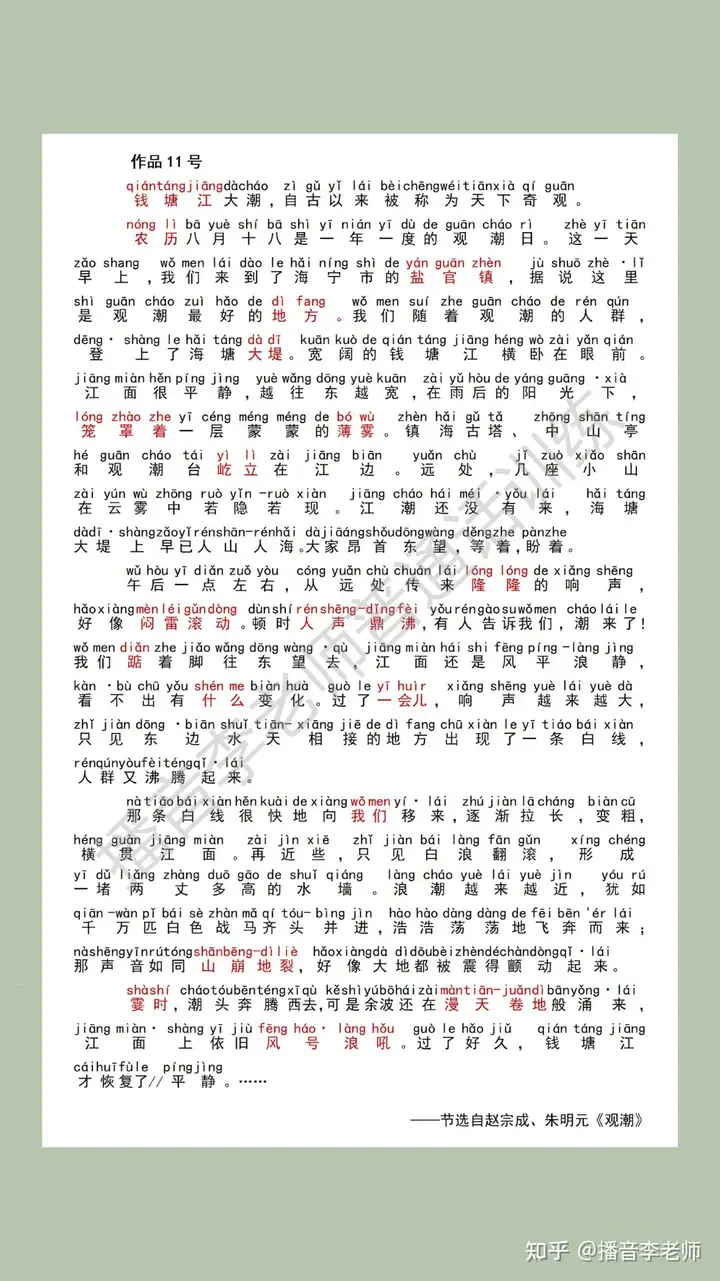 作品11号
qiántángjiāngdàcháo zì gǔ yǐ lái bèichēngwéitiānxià qí guān
钱塘江大潮,自古以来被称为天下奇观。
nóng lì bā yuè shí bā shì yī nián yí dù de guān cháo rì zhè yī tiān
农历八月十八是一年一度的观潮日。这一天
zǎo shang wǒ men lái dào le hǎi níng shì de yán guān zhèn jù shuō zhè ·lǐ
早上,我们来到了海宁市的盐官镇,据说这里
shì guān cháo zuì hǎo de dì fang wǒ men suí zhe guān cháo de rén qún
是观潮最好的地方。我们随着观潮的人群,
dēng· shàng le hǎi táng dà dī kuān kuò de qián táng jiāng héng wò zài yǎn qián
登上了海塘大堤。宽阔的钱塘江横卧在眼前。
jiāng miàn hěn píng jìng yuè wǎng dōng yuè kuān zài yǔ hòu de yáng guāng ·xià
江面很平静,越往东越宽,在雨后的阳光下,
lóng zhào zhe yī céng méng méng de bó wù zhèn hǎi gǔ tǎ zhōng shān tíng
笼罩着一层蒙蒙的薄雾。镇海古塔、中山亭
hé guān cháo tái yì lì zài jiāng biān yuǎn chù jǐ zuò xiǎo shān
和观潮台屹立在江边。远处,几座小山
zài yún wù zhōng ruò yǐn -ruò xiàn jiāng cháo hái méi ·yǒu lái hǎi táng
在云雾中若隐若现。江潮还没有来,海塘
dàdī·shàngzǎoyǐrénshān-rénhǎi dàjiāángshǒudōngwàng děngzhe pànzhe
大堤上早已人山人海。大家昂首东望,等着,盼着。
wǔ hòu yī diǎn zuǒ yòu cóng yuǎn chù chuán lái lóng lóng de xiǎng shēng
午后一点左右,从远处传来隆隆的响声,
hǎoxiàngmènléigǔndòng dùnshírénshēng-dǐngfèi yǒuréngàosuwǒmen cháoláile
好像闷雷滚动。顿时人声鼎沸,有人告诉我们,潮来了!
wǒ men diǎn zhe jiǎo wǎng dōng wàng ·qù jiāng miàn hái shi fēng píng -làng jìng
我们踮着脚往东望去,江面还是风平浪静,
kàn ·bù chū yǒu shén me biàn huà guò le yī huìr xiǎng shēng yuè lái yuè dà
看不出有什么变化。过了一会儿,响声越来越大,
zhǐ jiàn dōng ·biān shuǐ tiān- xiāng jiē de dì fang chū xiàn le yī tiáo bái xiàn
只见东边水天相接的地方出现了一条白线,
rénqúnyòufèiténgqǐ·lái
人群又沸腾起来。
nà tiáo bái xiàn hěn kuài de xiàng wǒ men yí· lái zhú jiàn lā cháng biàn cū
那条白线很快地向我们移来,逐渐拉长,变粗,
héng guàn jiāng miàn zài jìn xiē zhǐ jiàn bái làng fān gǔn xíng chéng
横贯江面。再近些,只见白浪翻滚,形成
yī dǔ liǎng zhàng duō gāo de shuǐ qiáng làng cháo yuè lái yuè jìn yóu rú
一堵两丈多高的水墙。浪潮越来越近,犹如
qiān -wàn pǐ bái sè zhàn mǎ qí tóu- bìng jìn hào hào dàng dàng de fēi bēn 'ér lái
千万匹白色战马齐头并进,浩浩荡荡地飞奔而来;
nàshēngyīnrútóngshānbēng-dìliè hǎoxiàngdà dìdōubèizhèndéchàndòngqǐ·lái
那声音如同山崩地裂,好像大地都被震得颤动起来。
shàshí cháotóubēnténgxīqù kěshìyúbōháizàimàntiān-juǎndìbānyǒng·lái
霎时,潮头奔腾西去,可是余波还在漫天卷地般涌来,
jiāng miàn· shàng yī jiù fēng háo· làng hǒu guò le hǎo jiǔ qián táng jiāng
江面上依旧风号浪吼。过了好久,钱塘江
cáihuīfùle píngjìng
才恢复了//平静。……
——节选自赵宗成、朱明元《观潮》
播音李老师普通话训练
知乎 @播音李老师